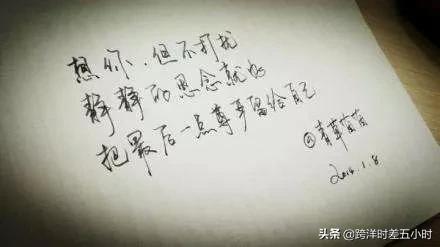 想你，但不打扰
静静的思念就好
把最后一点尊严留给自己
@青草茵茵
2016.1.8
头条 @跨洋时差五小时